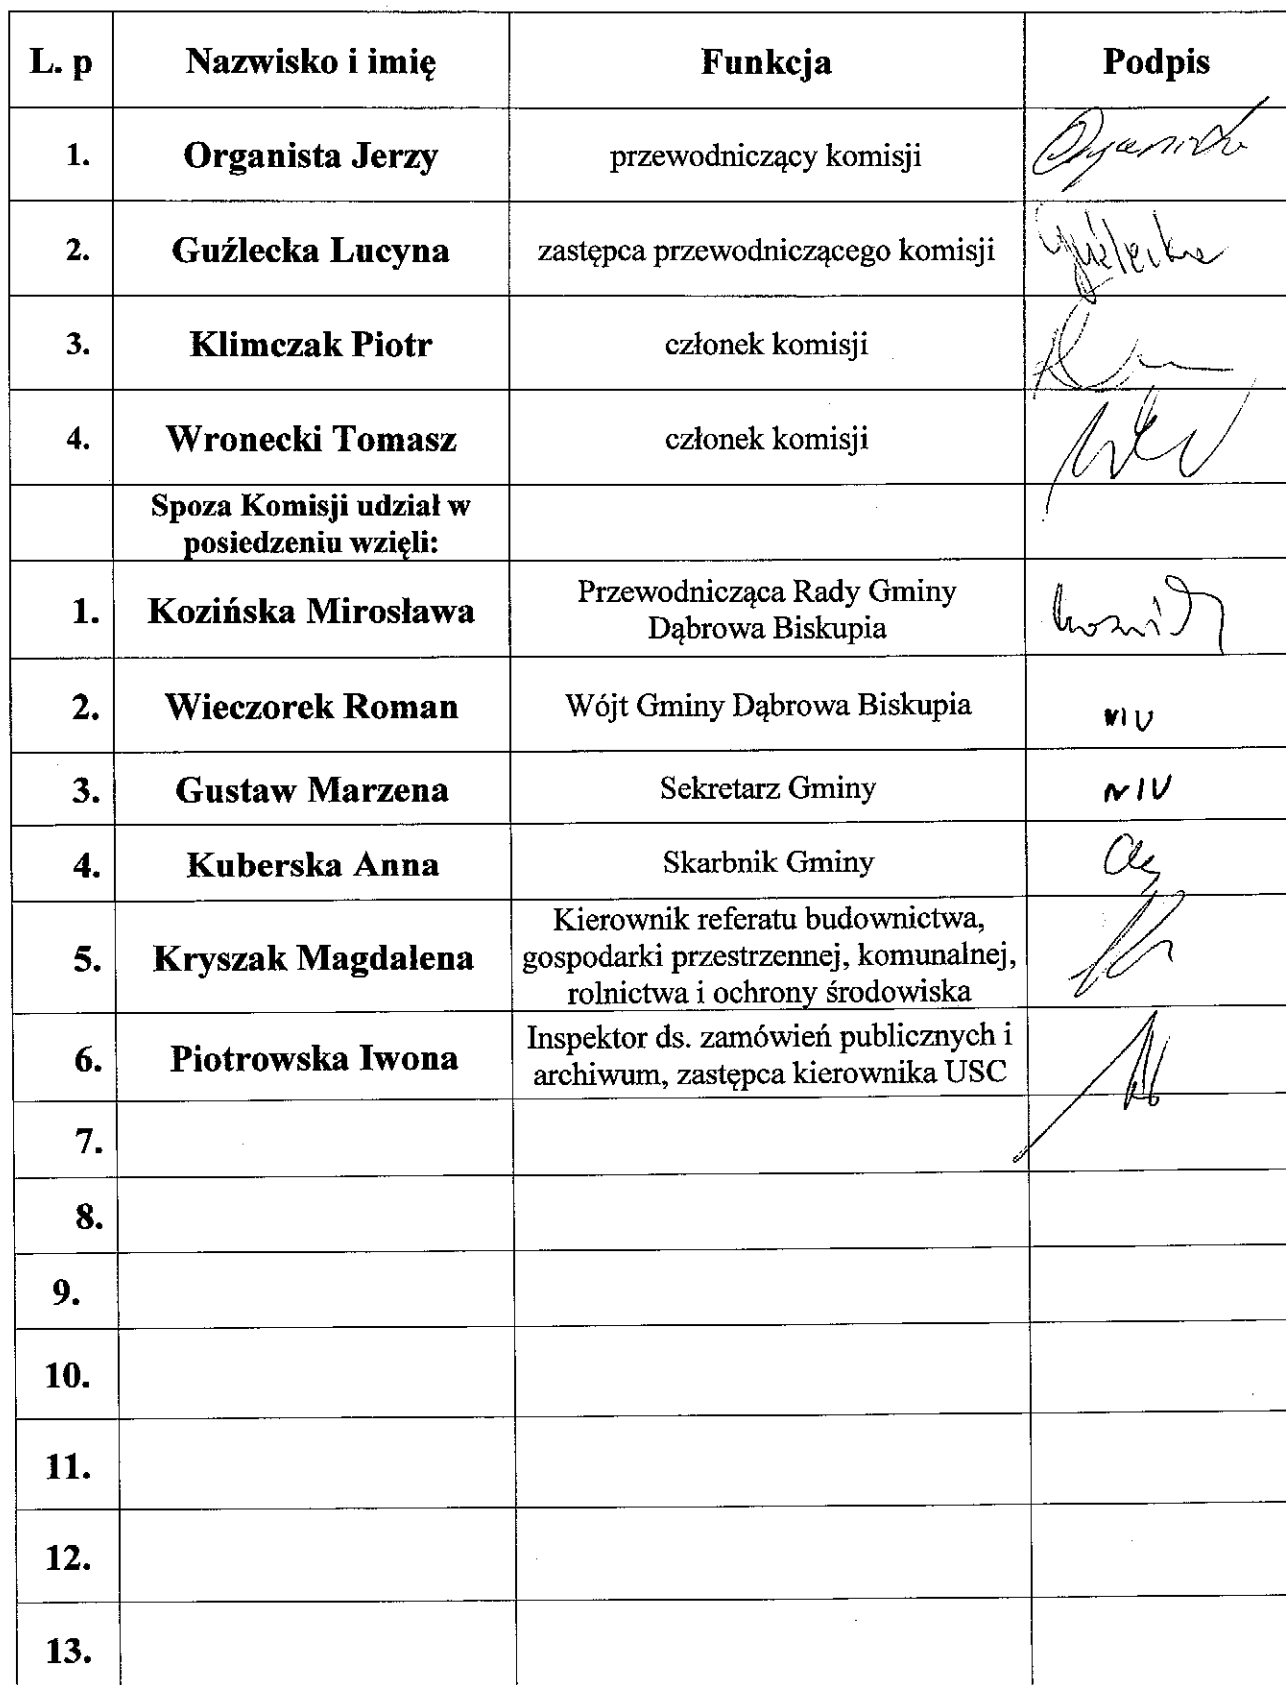 L. p Nazwisko i imię Funkcja Podpis
1. Organista Jerzy przewodniczący komisji
2. Guźlecka Lucyna zastępca przewodniczącego komisji Guźlecka
3. Klimczak Piotr członek komisji
4. Wronecki Tomasz członek komisji
Spoza Komisji udział w
posiedzeniu wzięli:
1. Kozińska Mirosława Przewodnicząca Rady Gminy
Dąbrowa Biskupia
2. Wieczorek Roman Wójt Gminy Dąbrowa Biskupia
3. Gustaw Marzena Sekretarz Gminy
4. Kuberska Anna Skarbnik Gminy
5. Kryszak Magdalena Kierownik referatu budownictwa,
gospodarki przestrzennej, komunalnej,
rolnictwa i ochrony środowiska
6. Piotrowska Iwona Inspektor ds. zamówień publicznych i
archiwum, zastępca kierownika USC
7.
8.
9.
10.
11.
12.
13.